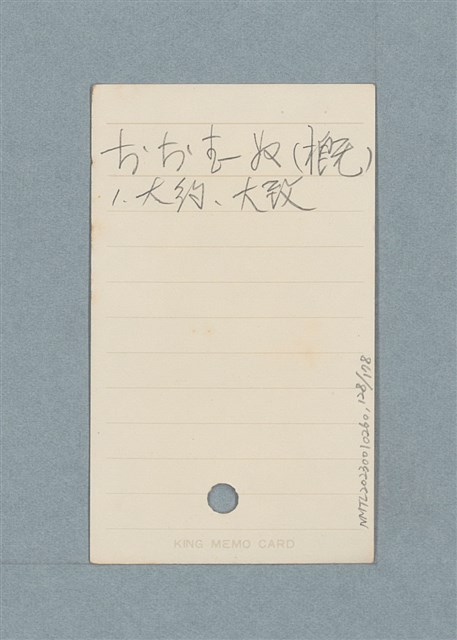 おおむぬ(概)
1. 大約、大致
NMTL20230010260, 128/178
KING MEMO CARD